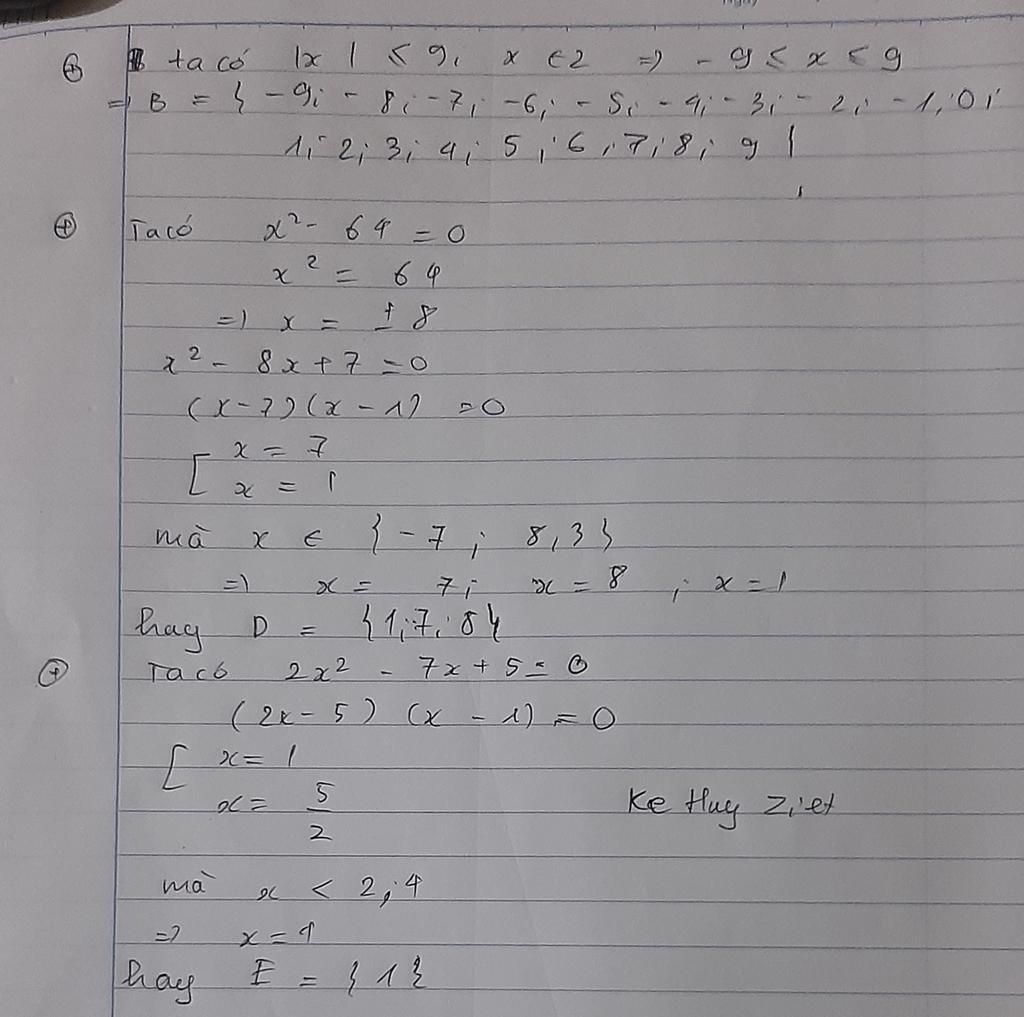 ⊕ B ta có |x| ≤ 9, x ∈ Z => -9 ≤ x ≤ 9
=> B = { -9; -8; -7; -6; -5; -4; -3; -2; -1; 0;
1; 2; 3; 4; 5; 6; 7; 8; 9 }
⊕ Ta có x² - 64 = 0
x² = 64
=> x = ± 8
x² - 8x + 7 = 0
(x - 7)(x - 1) = 0
[ x = 7
x = 1
mà x ∈ { -7; 8,3 }
=> x = 7; x = 8; x = 1
hay D = {1; 7; 8}
⊕ Ta có 2x² - 7x + 5 = 0
(2x - 5)(x - 1) = 0
[ x = 1
x = 5/2
Ke Huy Ziet
mà x < 2,4
=> x = 1
hay E = { 1 }